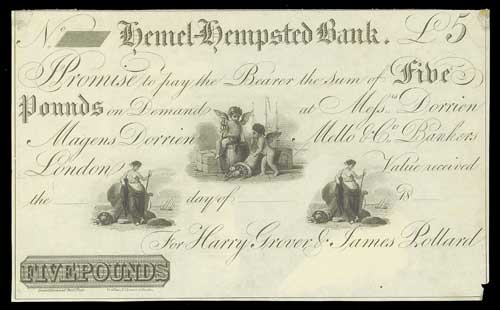 No. Hemel-Hempsted Bank. £5
I Promise to pay the Bearer the sum of Five
Pounds on Demand at Messrs. Dorrien
Magens Dorrien Mello & Co. Bankers
London Value received
the day of 18
For Harry Grover & James Pollard
FIVE POUNDS